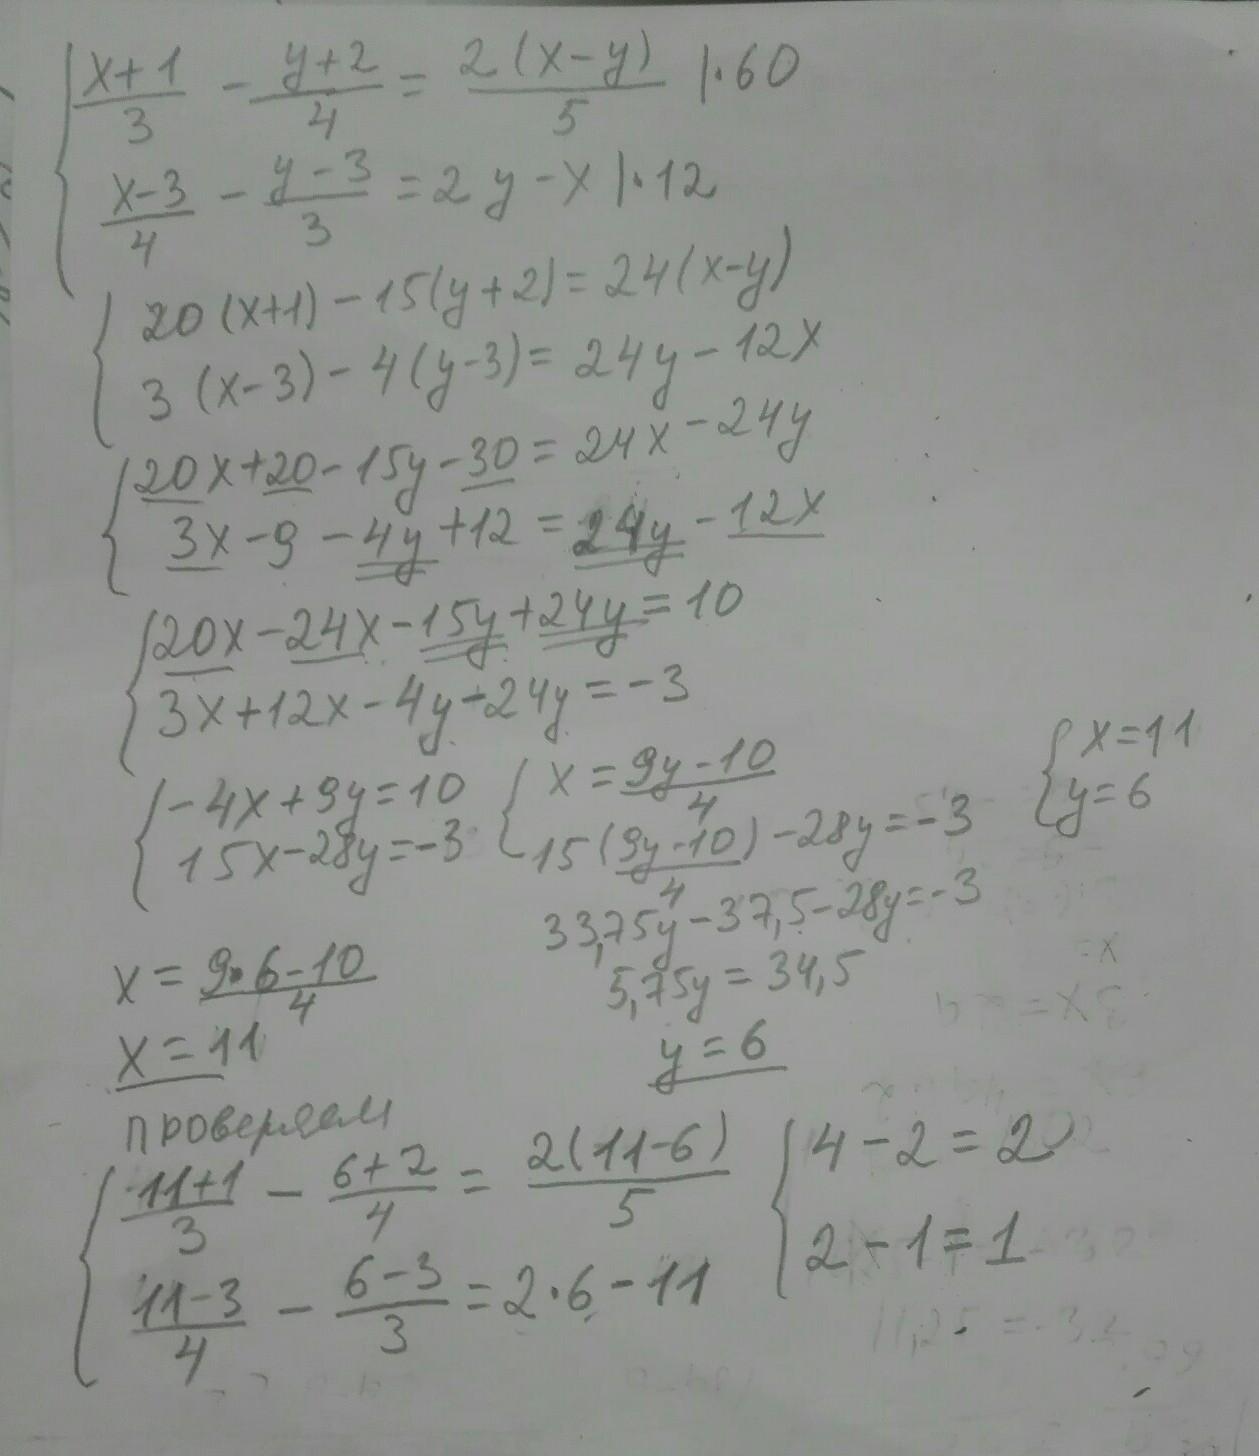 { (x+1)/3 - (y+2)/4 = 2(x-y)/5 |·60
(x-3)/4 - (y-3)/3 = 2y-x |·12
{ 20(x+1) - 15(y+2) = 24(x-y)
3(x-3) - 4(y-3) = 24y - 12x
{ 20x+20-15y-30 = 24x-24y
3x-9-4y+12 = 24y-12x
{ 20x-24x-15y+24y = 10
3x+12x-4y-24y = -3
{ -4x+9y=10
15x-28y=-3
{ x = (9y-10)/4
15(9y-10)/4 - 28y = -3
33,75y-37,5-28y=-3
5,75y = 34,5
y = 6
x = (9·6-10)/4
x = 11
{ x=11
y=6
проверяем
{ (11+1)/3 - (6+2)/4 = 2(11-6)/5
(11-3)/4 - (6-3)/3 = 2·6-11
{ 4-2=2
2-1=1